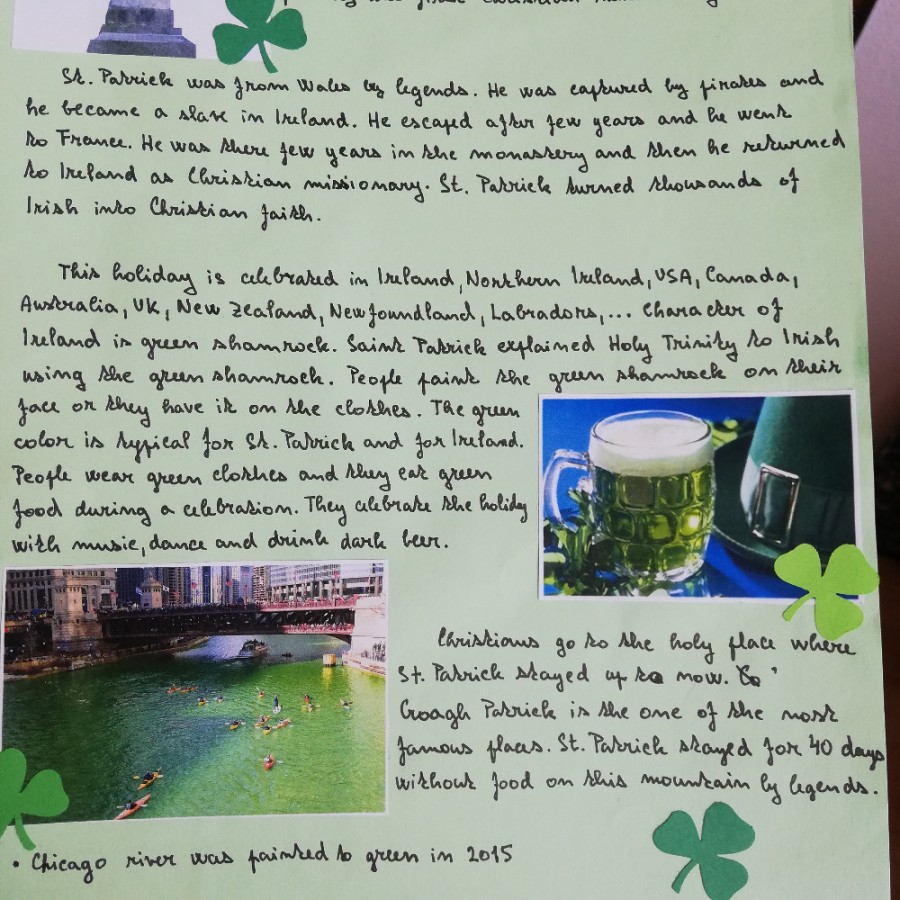 St. Patrick was from Wales by legends. He was captured by pirates and
he became a slave in Ireland. He escaped after few years and he went
to France. He was there few years in the monastery and then he returned
to Ireland as Christian missionary. St. Patrick turned thousands of
Irish into Christian faith.
This holiday is celebrated in Ireland, Northern Ireland, USA, Canada,
Australia, UK, New Zealand, Newfoundland, Labradors, ... Character of
Ireland is green shamrock. Saint Patrick explained Holy Trinity to Irish
using the green shamrock. People paint the green shamrock on their
face or they have it on the clothes. The green
color is typical for St. Patrick and for Ireland.
People wear green clothes and they eat green
food during a celebration. They celebrate the holiday
with music, dance and drink dark beer.
Christians go to the holy place where
St. Patrick stayed up to now.
Croagh Patrick is the one of the most
famous places. St. Patrick stayed for 40 days
without food on this mountain by legends.
• Chicago river was painted to green in 2015